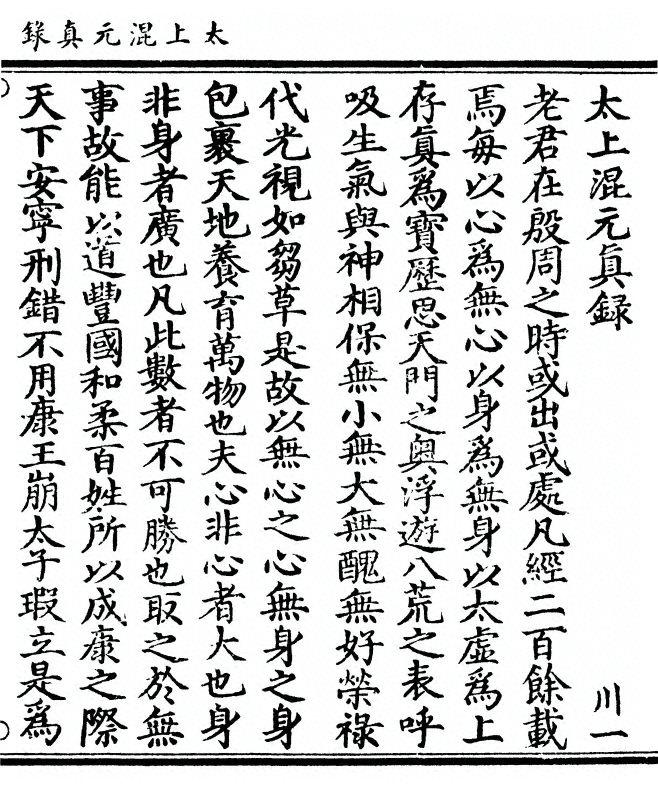 太上混元真錄
太上混元眞録
川一
老君在殷周之時或出或處凡經二百餘載
焉每以心爲無心以身爲無身以太虛爲上
存眞爲寶歷思天門之奥浮遊八荒之表呼
吸生氣與神相保無小無大無醜無好榮祿
代光視如芻草是故以無心之心無身之身
包裹天地養育萬物也夫心非心者大也身
非身者廣也凡此數者不可勝也取之於無
事故能以道豐國和柔百姓所以成康之際
天下安寧刑錯不用康王崩太子瑕立是爲